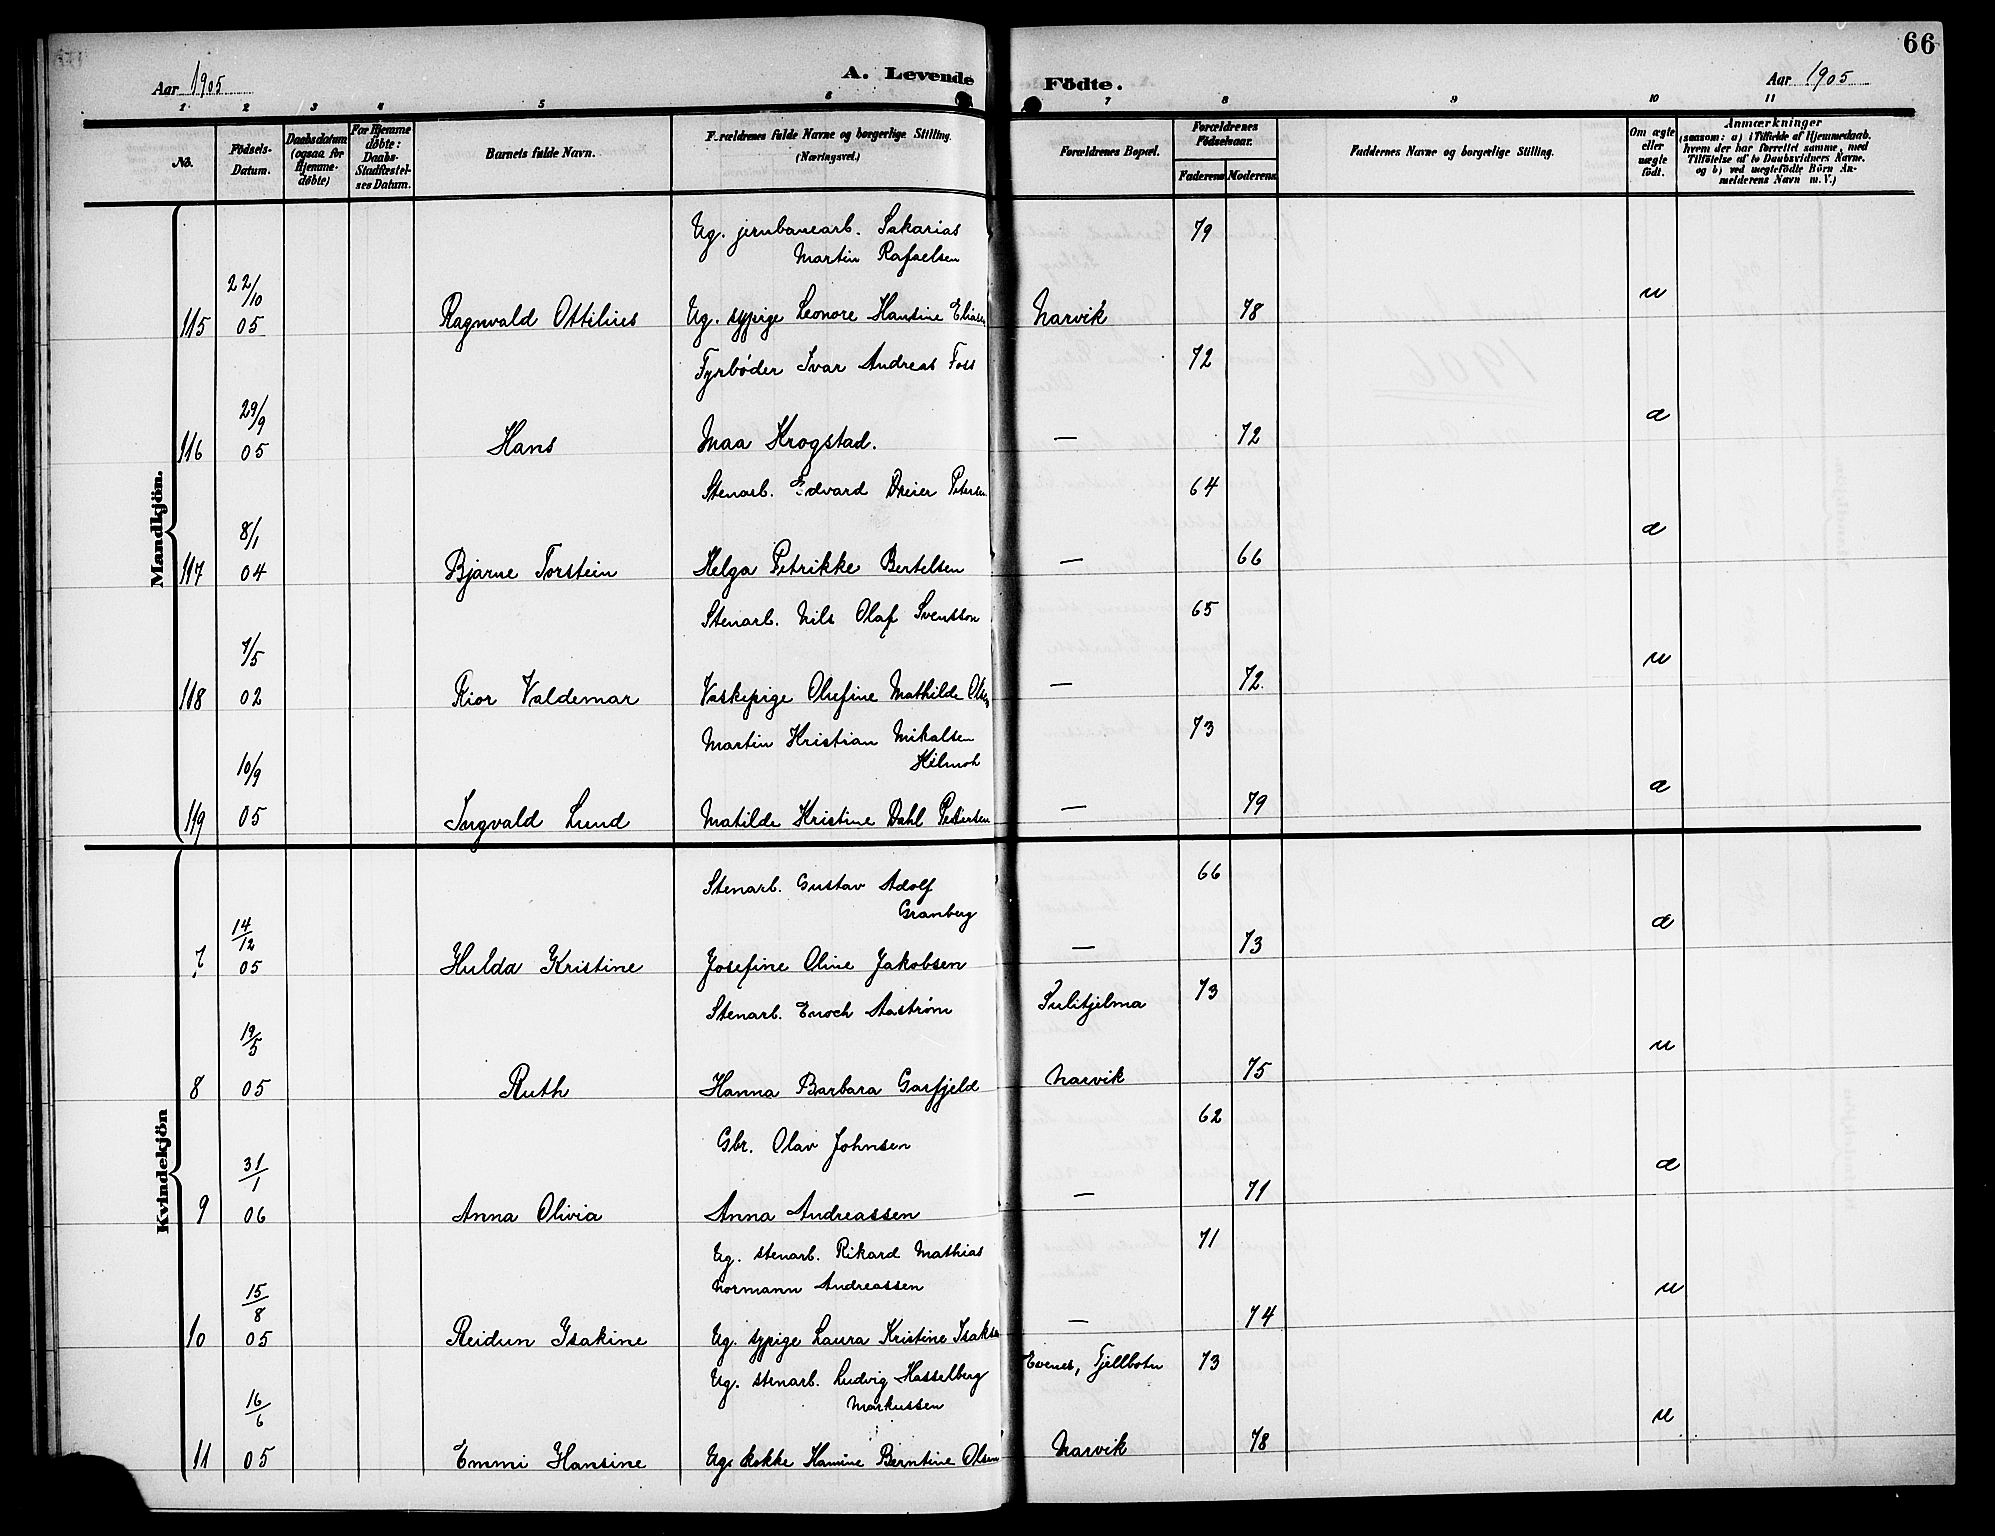 66
Aar 1905
A. Levende Födte.
Aar 1905
1 2 3 4 5 6 7 8 9 10 11
No.
Födsels-Datum.
Daabsdatum (ogsaa for Hjemme-døbte)
For Hjemme døbte: Daabs-Stadfæstelses Datum.
Barnets fulde Navn.
Forældrenes fulde Navne og borgerlige Stilling. (Næringsvei.)
Forældrenes Bopæl.
Forældrenes Födselsaar.
Faderens Moderens
Faddernes Navne og borgerlige Stilling.
Om ægte eller uægte født.
Anmærkninger
(saasom: a) i Tilfælde af Hjemmedaab, hvem der har forrettet samme, med Tilføielse af to Daabsvidners Navne. og b) ved uægtefødte Börn Anmelderens Navn m. V.)
Mandkjön.
Ug. jernbanearb. Sakarias 79
Martin Rafaelsen
22/10 u
115 05 Ragnvald Ottilius Ug. sypige Leonore Hantine Eliasen Narvik 78
Fyrbøder Ivar Andreas Foss 72
29/9 æ
116 05 Hans Maa Krogstad. — 72
Stenarb. Edvard Dreier Petersen 64
8/1 æ
117 04 Bjarne Torstein Helga Petrikke Bertelsen — 66
Stenarb. Nils Olaf Svensson 65
7/5 u
118 02 Rior Valdemar Vaskepige Olufine Mathilde Olsen — 72.
Martin Kristian Mikalsen 73
Hilmoh
10/9 æ
119 05 Ingvald Lund Matilde Kristine Dahl Pedersen — 79
Kvindekjön
Stenarb. Gustav Adolf 66
Granberg
14/12 æ
7 05 Hulda Kristine Josefine Oline Jakobsen — 73
Stenarb. Enoch Aaström Sulitjelma 73
19/5 u
8 05 Ruth Hanna Barbara Garfjeld Narvik 75
Gbr. Olav Johnsen 62
31/1 æ
9 06 Anna Olivia Anna Andreassen — 71
Ug. stenarb. Rikard Mathias 71
Normann Andreassen
15/8 u
10 05 Reidun Isakine Ug. sypige Laura Kristine Isaksen — 74
Ug. stenarb. Ludvig Hasselberg Evenes, Fjellbotn 73
Markussen
16/6 u
11 05 Emmi Hansine Ug. kokke Hansine Berntine Olsen Narvik 78